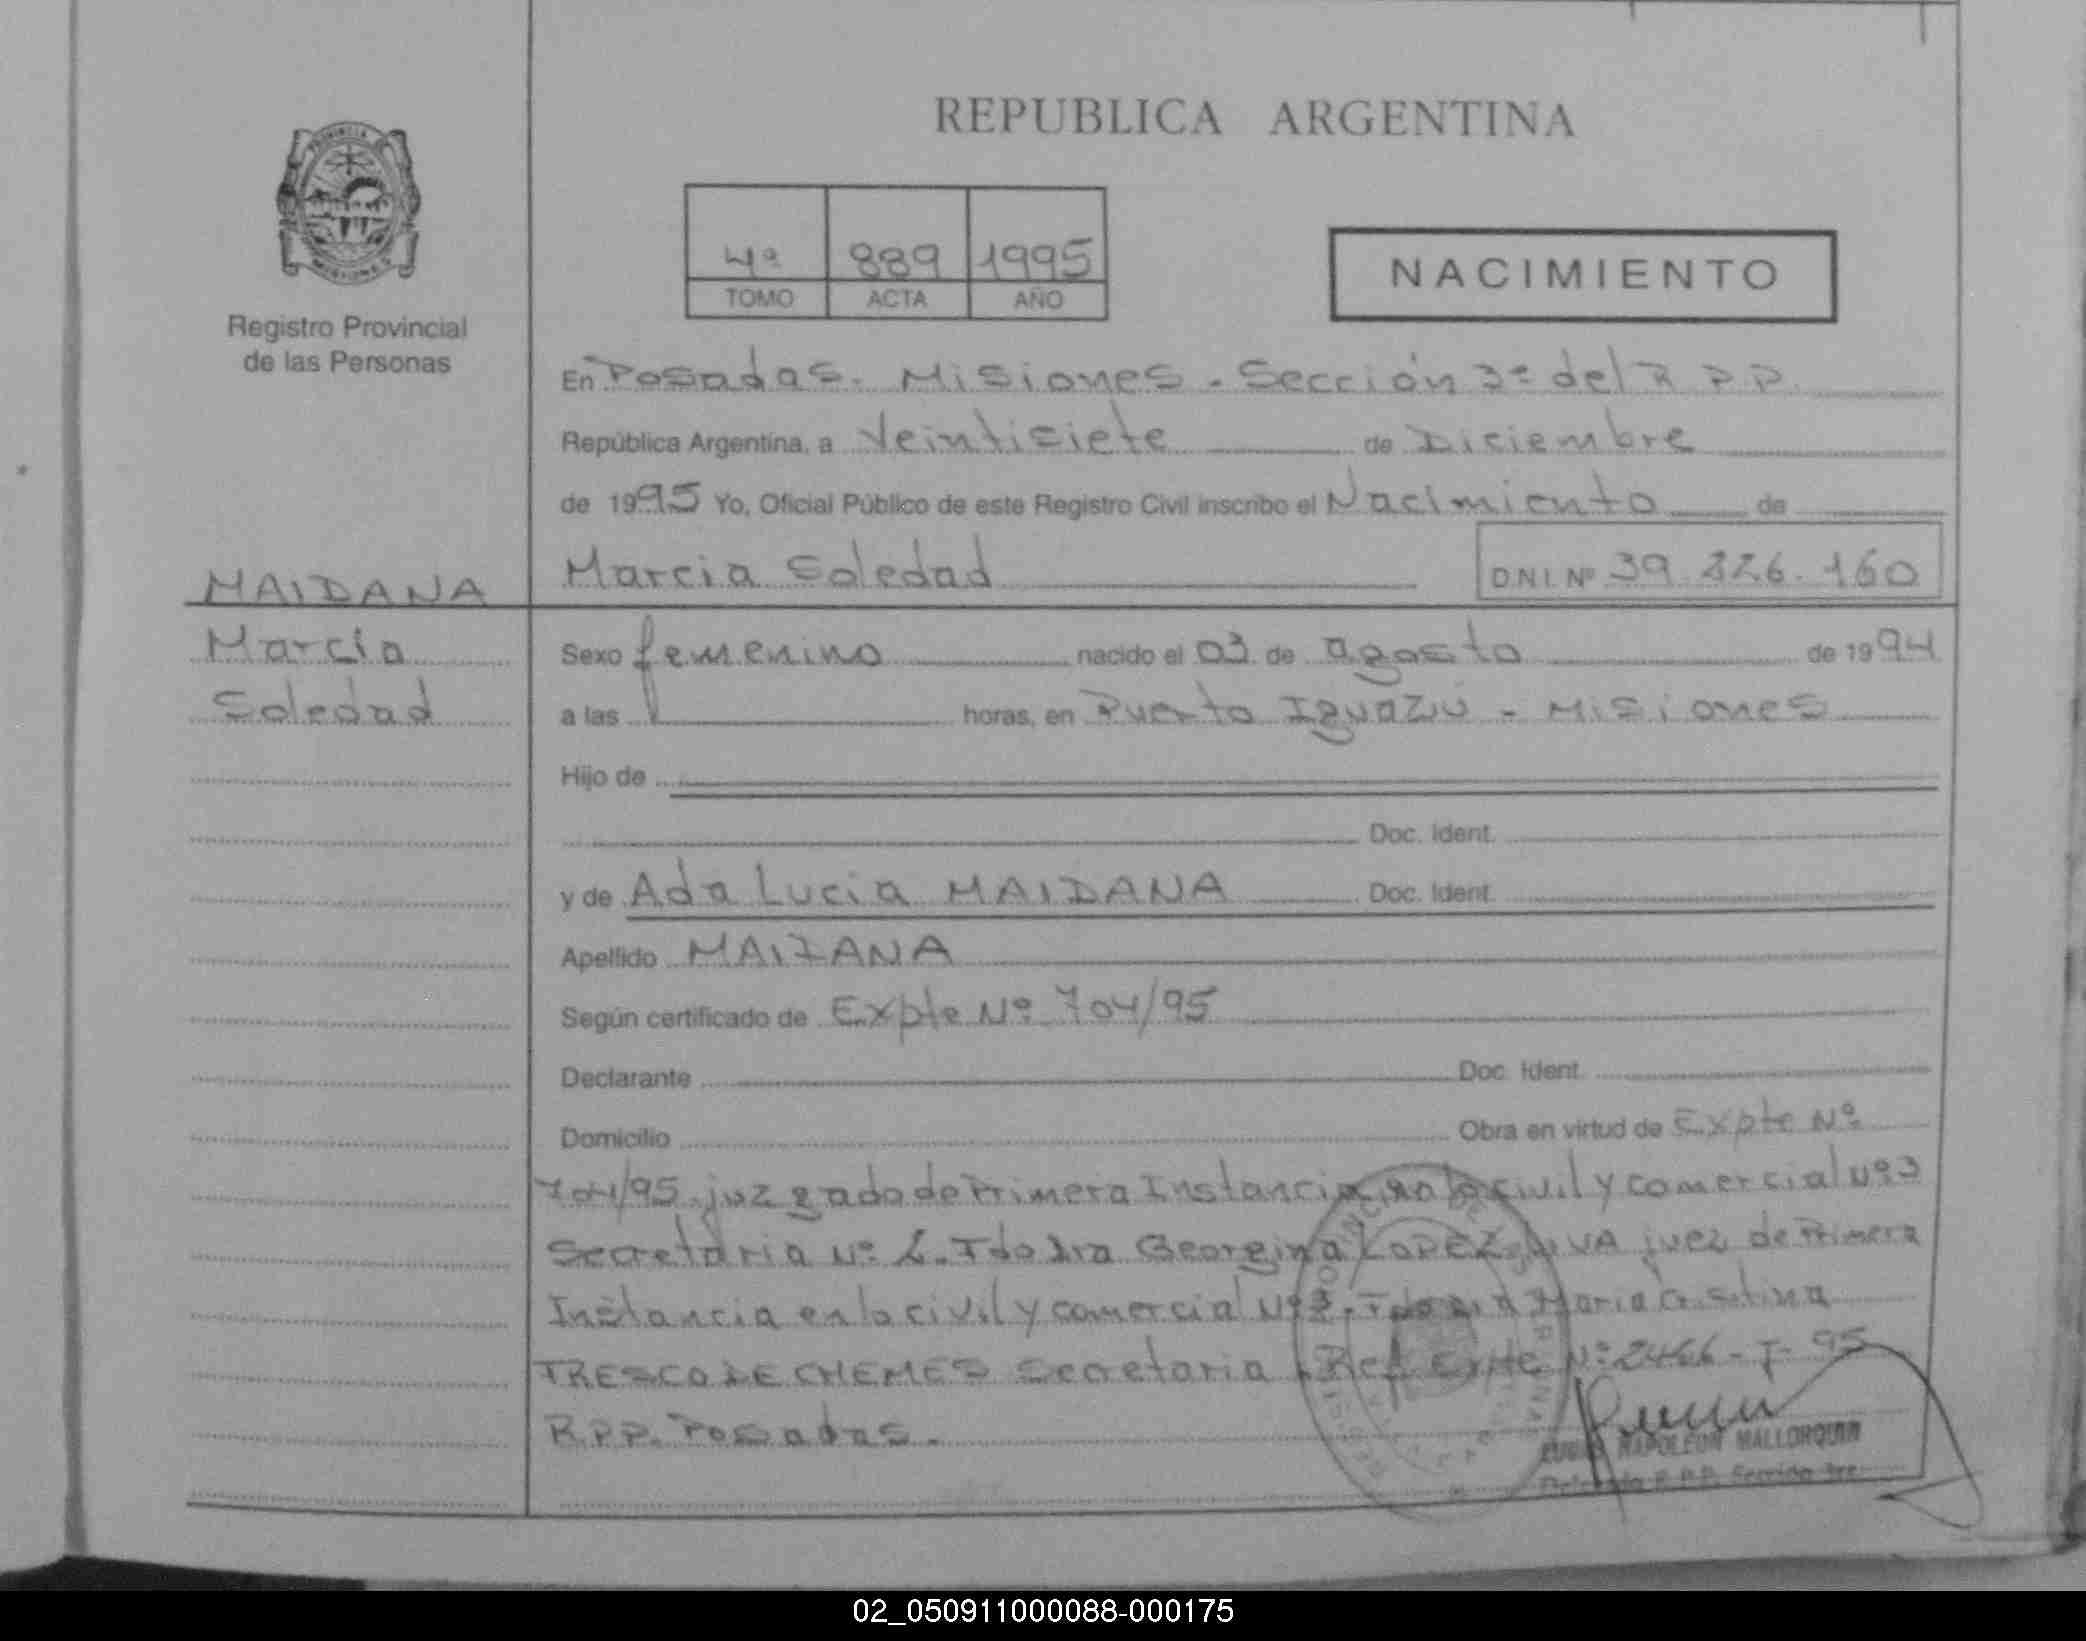 REPUBLICA ARGENTINA
PROVINCIA
MISIONES
Registro Provincial
de las Personas
4º 889 1995
TOMO ACTA AÑO
NACIMIENTO
En Posadas. Misiones. Sección 3º del R P P.
República Argentina, a Veintisiete de Diciembre
de 1995 Yo, Oficial Público de este Registro Civil inscribo el Nacimiento de
MAIDANA
Marcia Soledad D.N.I. Nº 39.226.160
Marcia
Soledad
Sexo femenino nacido el 03 de agosto de 1994
a las horas, en Puerto Iguazú - Misiones
Hijo de
Doc. Ident.
y de Ada Lucia MAIDANA Doc. Ident.
Apellido MAIDANA
Según certificado de Expte Nº 704/95
Declarante Doc. Ident.
Domicilio Obra en virtud de Expte Nº
704/95. juzgado de Primera Instancia en lo civil y comercial Nº 3
Secretaria Nº Fdo Dra Georgina LOPEZ juez de Primera
Instancia en lo civil y comercial Nº 3. Fdo Maria Cristina
TRESCO DE CHEMES Secretaria. Ref. Expte Nº 2466-J-95
R.P.P. Posadas.
NAPOLEON MALLORQUIN
R.P.P. Sección
02_050911000088-000175